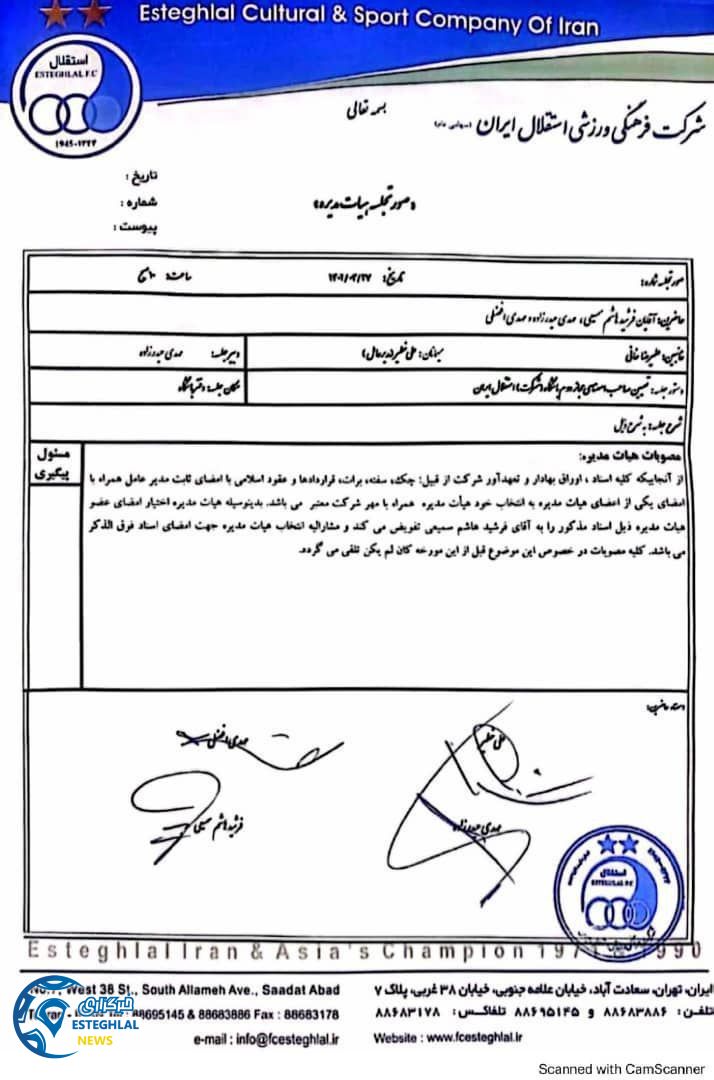 Esteghlal Cultural & Sport Company Of Iran
استقلال
ESTEGHLAL F.C
۱۹۴۵-۱۳۲۴
بسمه تعالی
شرکت فرهنگی ورزشی استقلال ایران (سهامی عام)
تاریخ :
شماره :
پیوست :
«صورتجلسه هیات مدیره»
صورتجلسه شماره: تاریخ: ساعت: ۱۰ صبح
حاضرین: آقایان فرشید هاشم سمیعی، مهدی حیدرزاده، مهدی افضلی
غائبین: علیرضا خانی میهمانان: علی خطیر (مدیرعامل) دبیر جلسه: مهدی حیدرزاده
دستور جلسه: تعیین صاحب امضای مجاز دوم باشگاه (شرکت) استقلال ایران مکان جلسه: دفتر باشگاه
شرح جلسه: به شرح ذیل
مصوبات هیات مدیره:
مسئول پیگیری
از آنجاییکه کلیه اسناد ، اوراق بهادار و تعهدآور شرکت از قبیل: چک، سفته، برات، قراردادها و عقود اسلامی با امضای ثابت مدیر عامل همراه با
امضای یکی از اعضای هیات مدیره به انتخاب خود هیأت مدیره همراه با مهر شرکت معتبر می باشد. بدینوسیله هیات مدیره اختیار امضای عضو
هیات مدیره ذیل اسناد مذکور را به آقای فرشید هاشم سمیعی تفویض می کند و مشارالیه انتخاب هیات مدیره جهت امضای اسناد فوق الذکر
می باشد. کلیه مصوبات در خصوص این موضوع قبل از این مورخه کان لم یکن تلقی می گردد.
امضاء حاضرین:
علی خطیر
مهدی افضلی
مهدی حیدرزاده
فرشید هاشم سمیعی
استقلال
ESTEGHLAL F.C
Esteghlal Iran & Asia's Champion 1971 & 1990
ایران، تهران، سعادت آباد، خیابان علامه جنوبی، خیابان ۳۸ غربی، پلاک ۷
تلفن : ۸۸۶۸۳۸۸۶ و ۸۸۶۹۵۱۴۵ تلفاکس : ۸۸۶۸۳۱۷۸
Website : www.fcesteghlal.ir
West 38 St., South Allameh Ave., Saadat Abad
88695145 & 88683886 Fax : 88683178
e-mail : info@fcesteghlal.ir
خبرگزاری
ESTEGHLAL
NEWS
Scanned with CamScanner